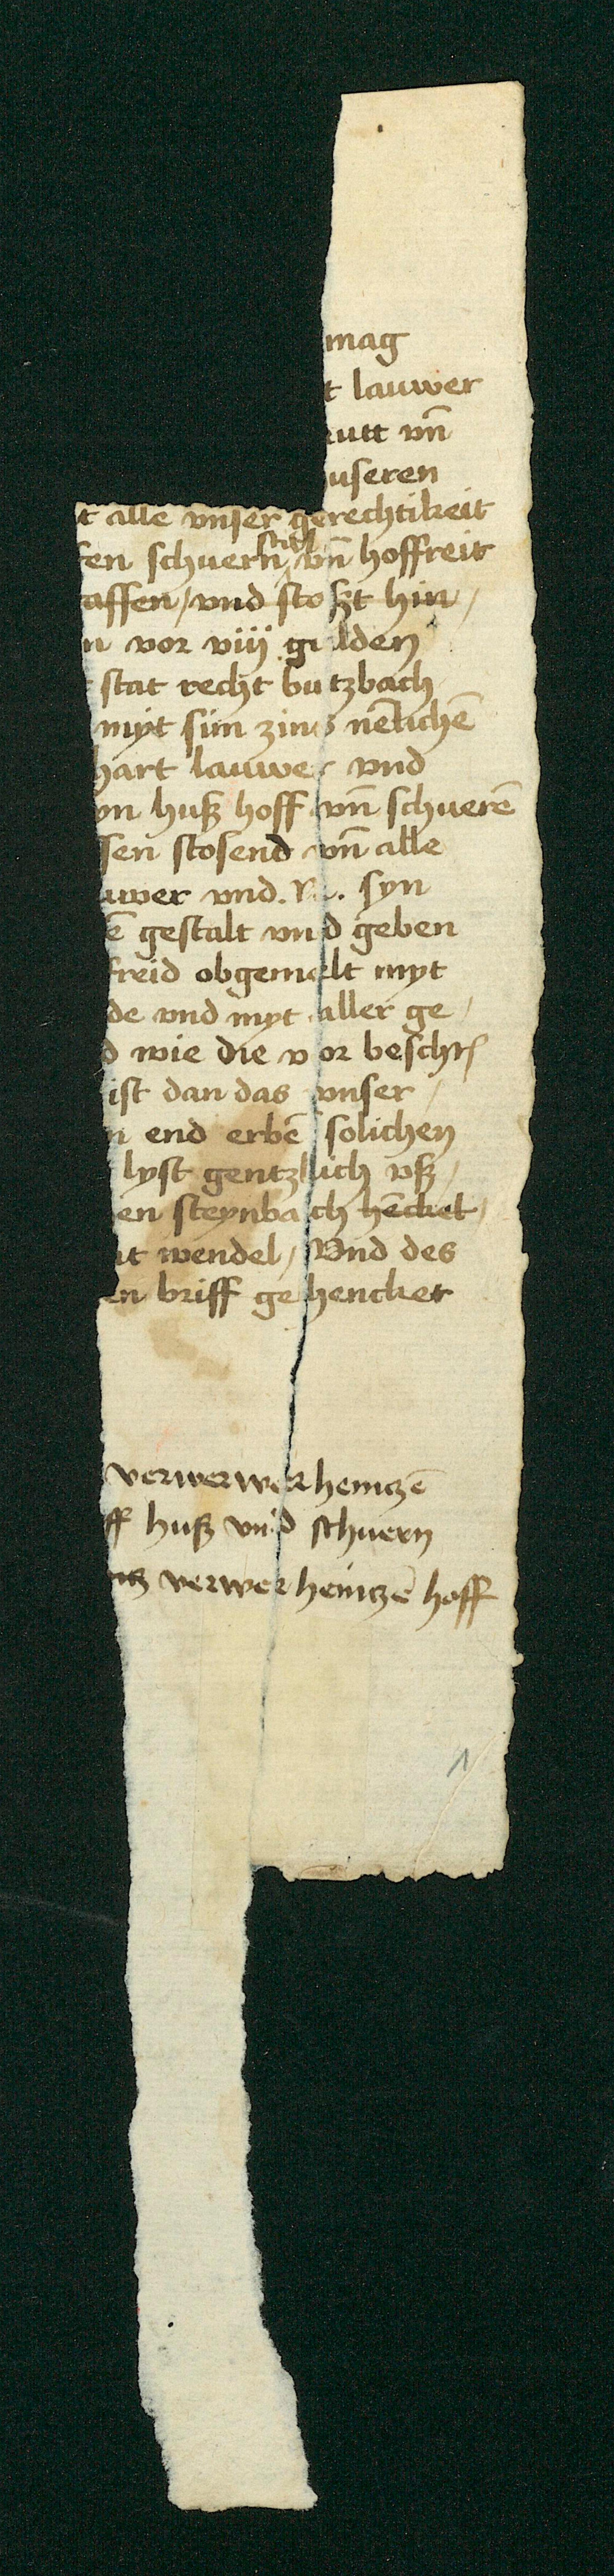 mag
t lauwer
utt vn̄
useren
t alle vnser gerechtikeit
en schuern, vn̄ hoffreit
affen, vnd stoßt hin,
n vor viij gulden
stat recht butzbach
myt sim zins nēlichē
hart lauwer vnd
yn huß hoff vn̄ schuerē
sen stosend vn̄ alle
uwer vnd. syn
ē gestalt vnd geben
freid obgemelt myt
de vnd myt aller ge,
d wie die vor beschr
ist dan das vnser,
n end erbē solichen
lyst gentzlich vß,
en steynbach hēcket,
it wendel, Vnd des
en briff gehencket
verwerwer heintzē
ff huß vnd schuern
tz verwer heintzē hoff
1